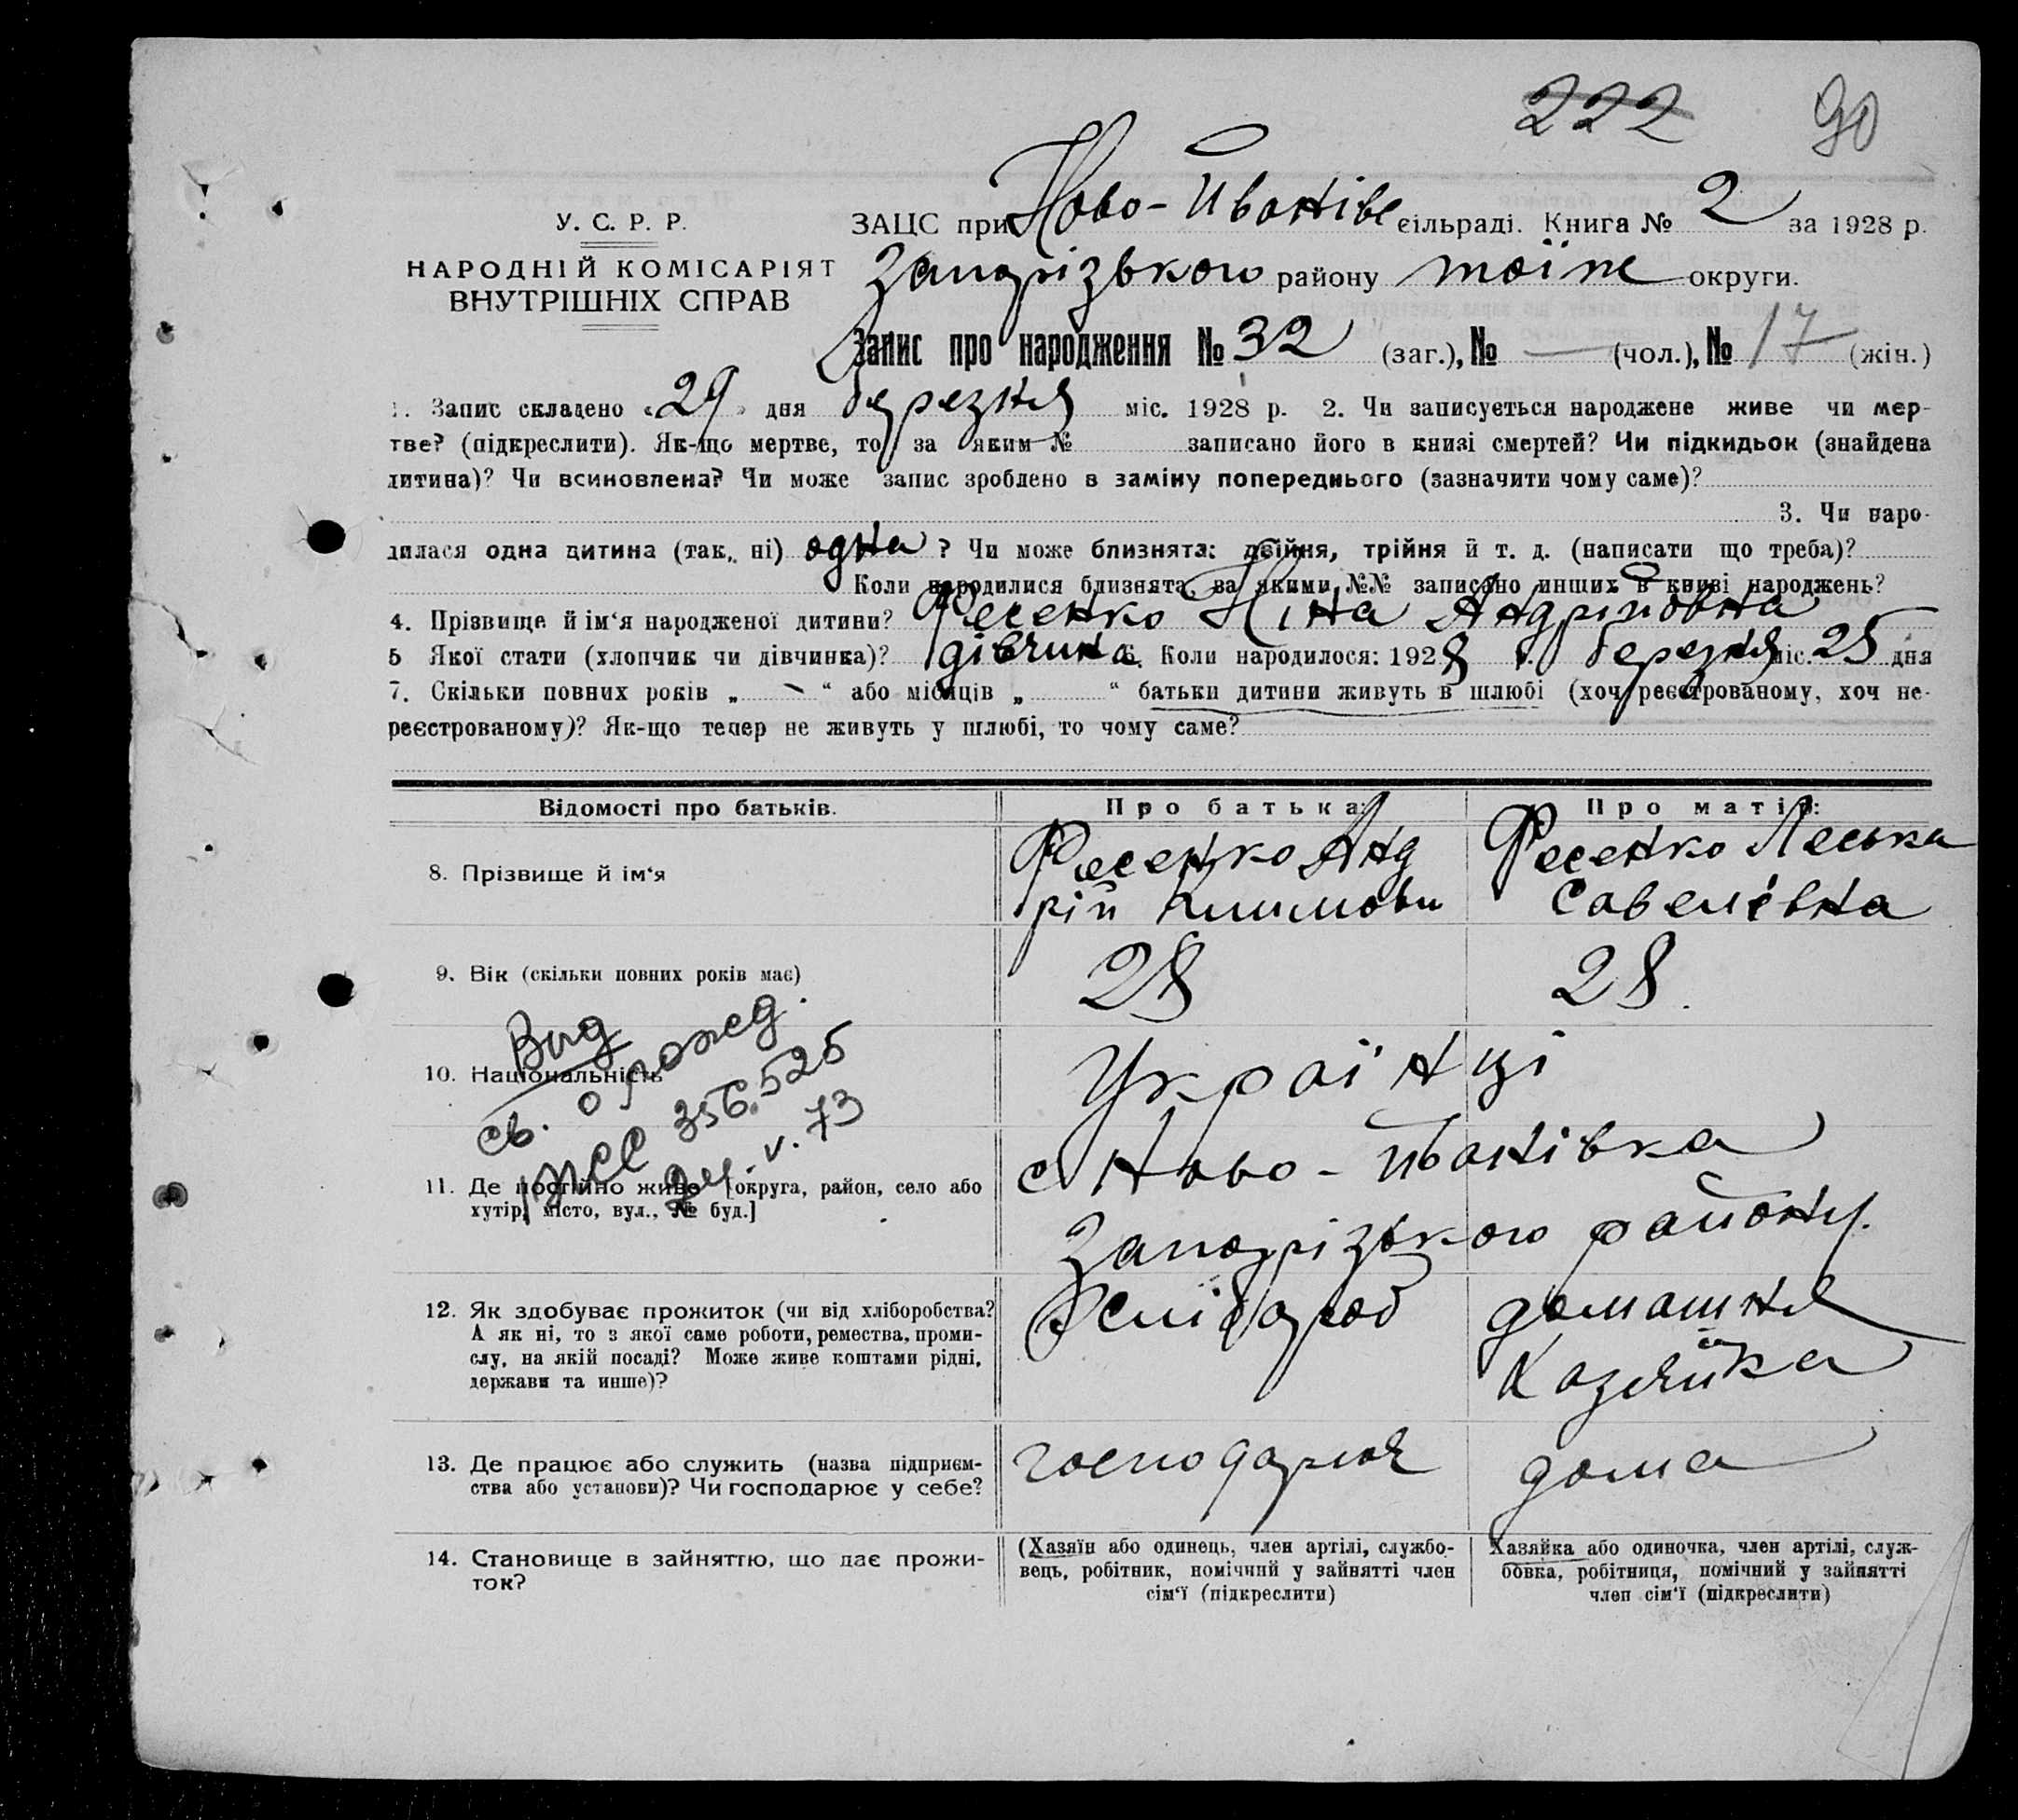 222 90
У. С. Р. Р.
НАРОДНІЙ КОМІСАРІЯТ
ВНУТРІШНІХ СПРАВ
ЗАЦС при Ново-Иванівс сільраді. Книга № 2 за 1928 р.
Запорізького району тоїж округи.
Запис про народження № 32 (заг.), № — (чол.), № 17 (жін.)
1. Запис складено «29» дня березня міс. 1928 р. 2. Чи записується народжене живе чи мер-
тве? (підкреслити). Як-що мертве, то за яким № записано його в книзі смертей? Чи підкидьок (знайдена
дитина)? Чи всиновлена? Чи може запис зроблено в заміну попереднього (зазначити чому саме)?
3. Чи наро-
дилася одна дитина (так, ні) одна ? Чи може близнята: двійня, трійня й т. д. (написати що треба)?
Коли народилися близнята, за якими №№ записано инших в книзі народжень?
4. Прізвище й ім‘я народженої дитини? Фесенко Ніна Андріповна
5 Якої стати (хлопчик чи дівчинка)? дівчина 6. Коли народилося: 1928 р. березня міс. 25 дня
7. Скільки повних років „ — “ або місяців „ “ батьки дитини живуть в шлюбі (хоч реєстрованому, хоч не-
реєстрованому)? Як-що тепер не живуть у шлюбі, то чому саме?
Відомості про батьків. Про батька: Про матір:
8. Прізвище й ім‘я Фесенко Анд Фесенко Леська
рій Климови Савелівна
9. Вік (скільки повних років має) 28 28
Выд
св. о рожд.
356.525
v. 73
10. Національність Українці
11. Де постійно живе [округа, район, село або с Ново-Иванівка
хутір, місто, вул., № буд.] Запорізького району.
12. Як здобуває прожиток (чи від хліборобства? Хлібороб домашня
А як ні, то з якої саме роботи, ремества, проми- Хазяйка
слу, на якій посаді? Може живе коштами рідні,
держави та инше)?
13. Де працює або служить (назва підприєм- господарює дома
ства або установи)? Чи господарює у себе?
14. Становище в зайняттю, що дає прожи- (Хазяїн або одинець, член артілі, службо- Хазяйка або одиночка, член артілі, служ-
ток? вець, робітник, помічний у зайнятті член бовка, робітниця, помічний у зайнятті
сім‘ї (підкреслити) член сім‘ї (підкреслити)